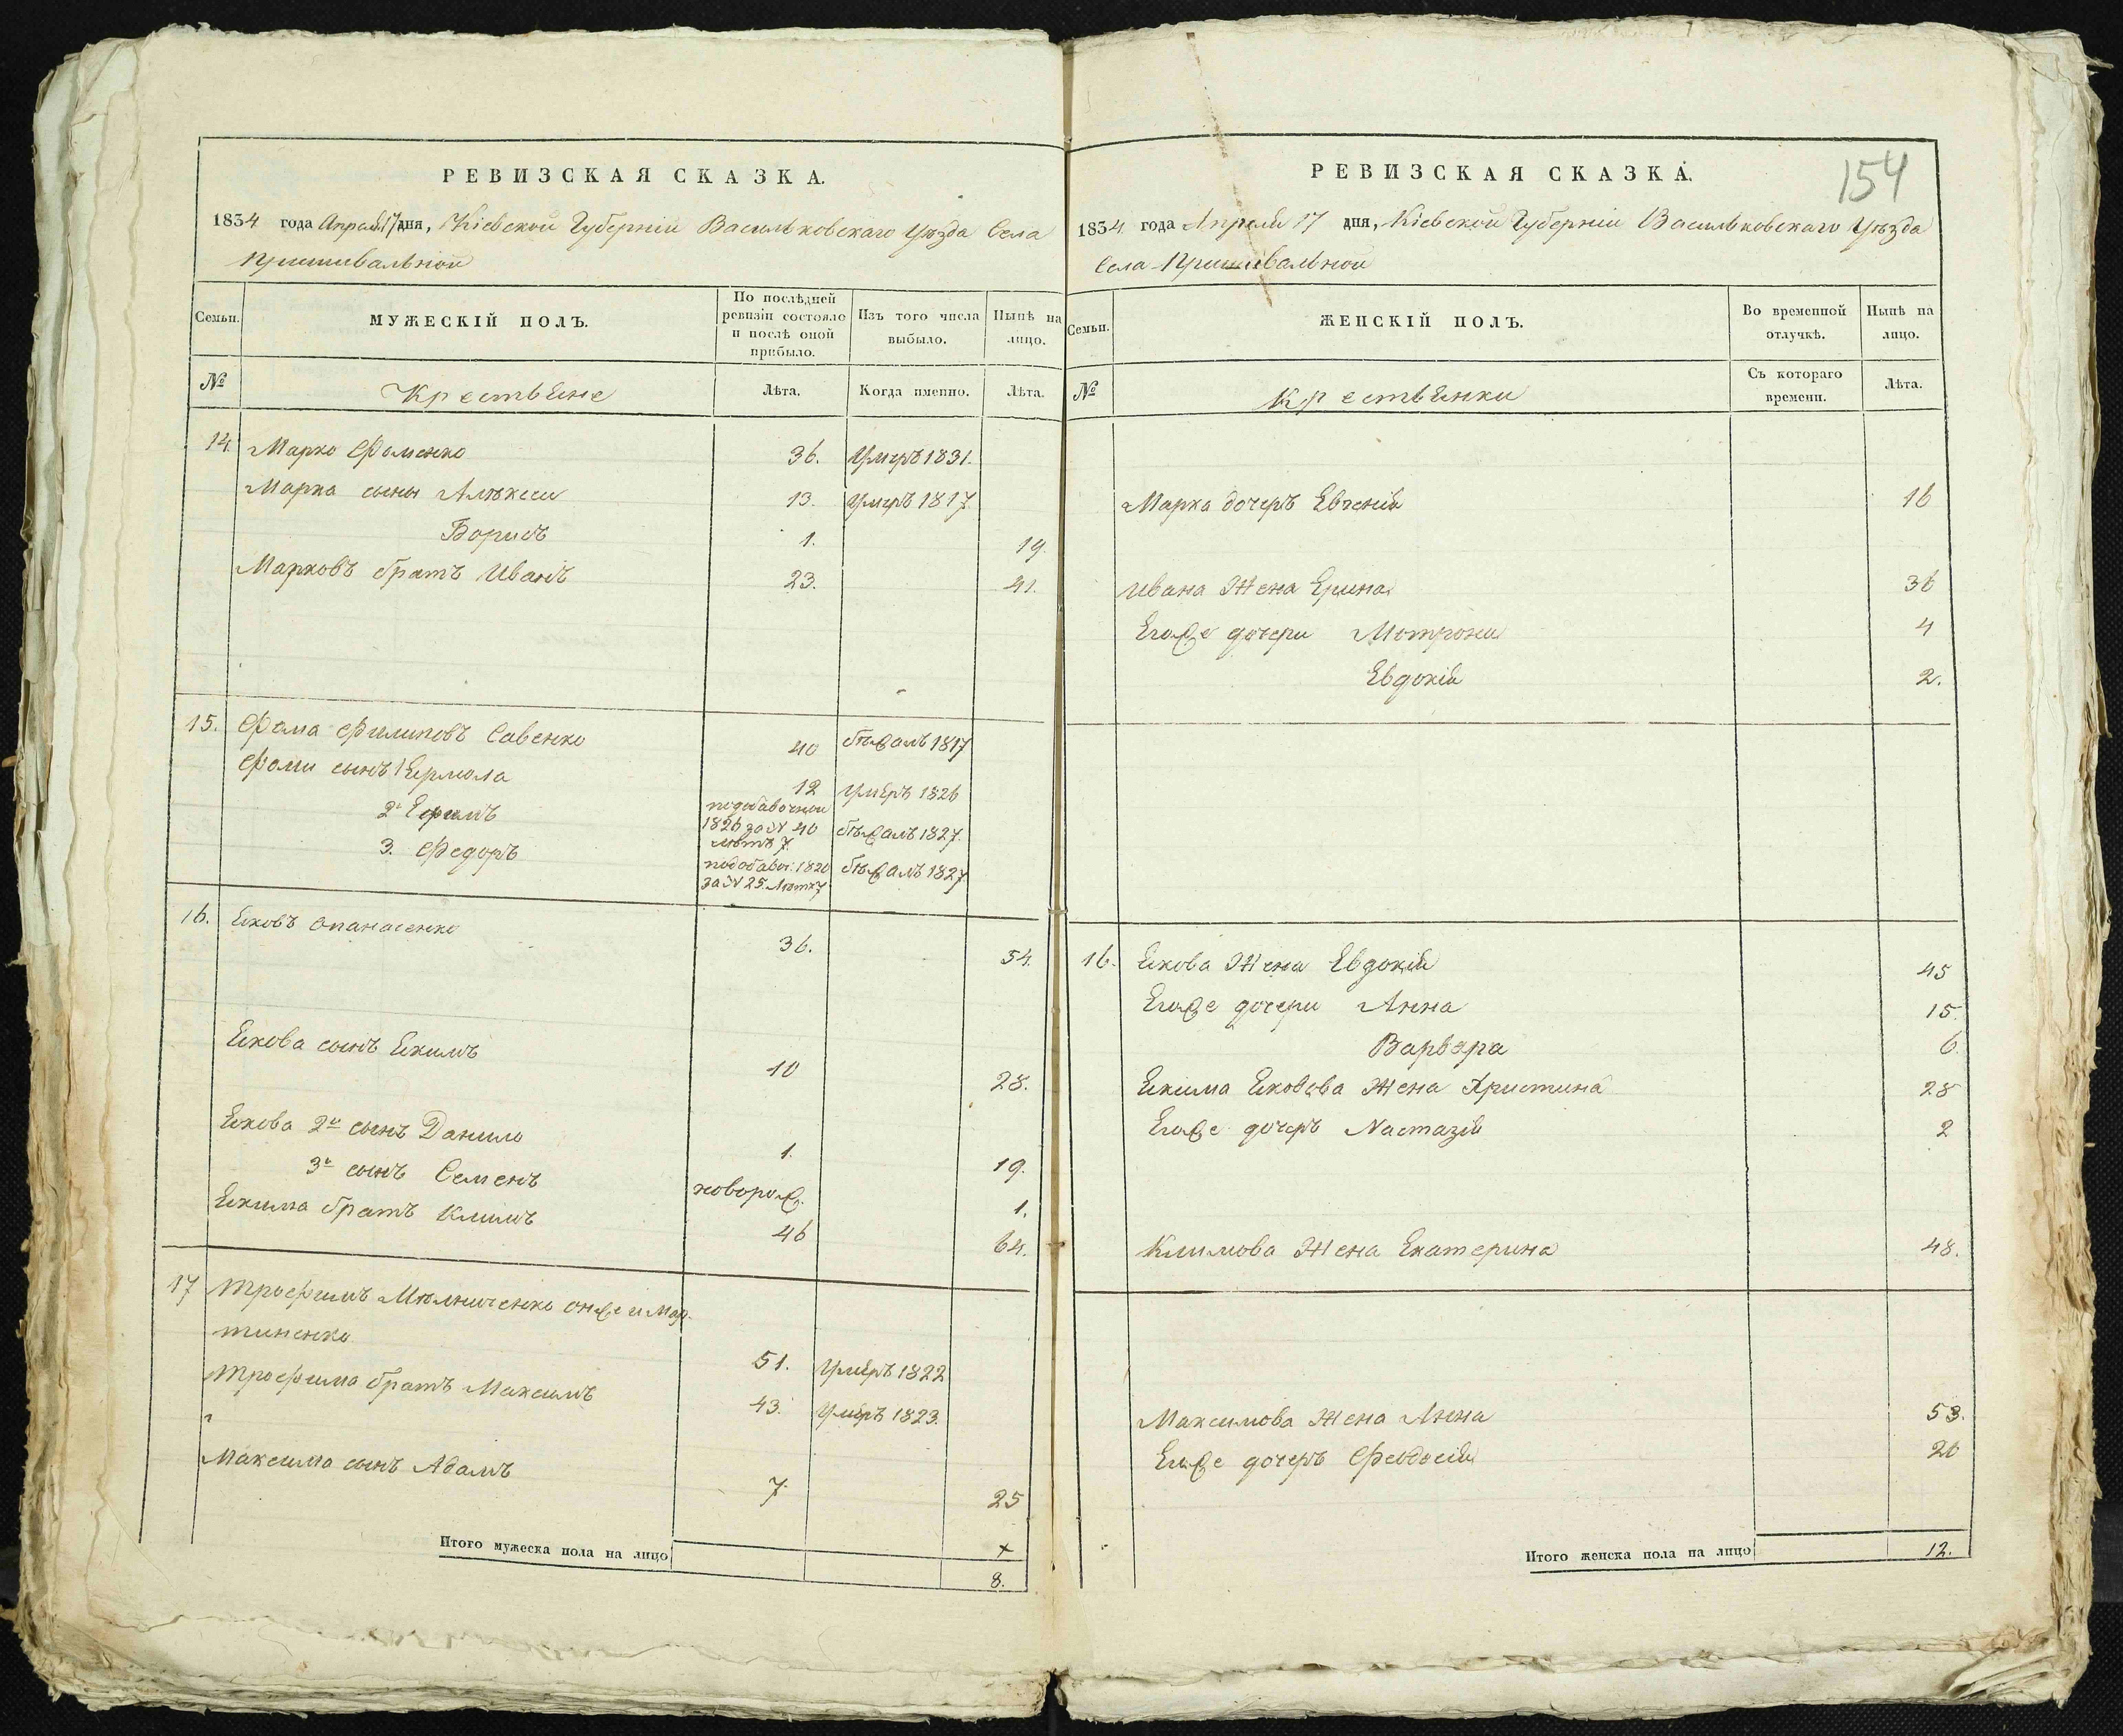 РЕВИЗСКАЯ СКАЗКА.
1834 года Апреля 17 дня, Кіевской Губерніи Васильковскаго Уѣзда Села
Пришивальной
Семьи.
МУЖЕСКІЙ ПОЛЪ.
По послѣдней ревизіи состояло и послѣ оной прибыло.
Изъ того числа выбыло.
Нынѣ на лицо.
№
Крестьяне
Лѣта.
Когда именно.
Лѣта.
14. Марко Фоменко 36. Умеръ 1831.
Марка сыны Алѣксеи 13. Умеръ 1817
Борисъ 1. 19.
Марковъ братъ Иванъ 23. 41.
15. Фома Филиповъ Савенко 40 бѣжалъ 1817
Фоми сынъ 1 Ермола 12 Умеръ 1826
2й Ефимъ подобавочной 1826 за № 40 лѣтъ 7 бѣжалъ 1827.
3. Федоръ подобавоч. 1820 за № 25. Лѣтъ 7 бѣжалъ 1827
16. Яковъ Опанасенко 36. 54.
Якова сынъ Якимъ 10 28.
Якова 2й сынъ Данило 1. 19.
3й сынъ Семенъ новорож. 1.
Якима братъ Климъ 46 64.
17 Трофимъ Мѣлниченко онже и Мар-
тиненко 51. Умеръ 1822
Трофима братъ Максимъ 43. Умеръ 1823.
Максима сынъ Адамъ 7. 25
Итого мужеска пола на лицо
8.
РЕВИЗСКАЯ СКАЗКА.
154
1834 года Апреля 17 дня, Кіевской Губерніи Васильковскаго Уѣзда
Села Пришивальной
Семьи.
ЖЕНСКІЙ ПОЛЪ.
Во временной отлучкѣ.
Нынѣ на лицо.
№
Крестьянки
Съ котораго времени.
Лѣта.
Марка дочеръ Евгенія 16
Ивана Жена Ерина 36
Егоже дочери Мотрона 4
Евдокія 2.
16. Якова Жена Евдокія 45
Егоже дочери Анна 15.
Варвара 6
Якима Яковова Жена Христина 28
Егоже дочеръ Настазія 2
Климова Жена Екатерина 48.
Максимова Жена Анна 53.
Егоже дочеръ Феодосія 26
Итого женска пола на лицо 12.